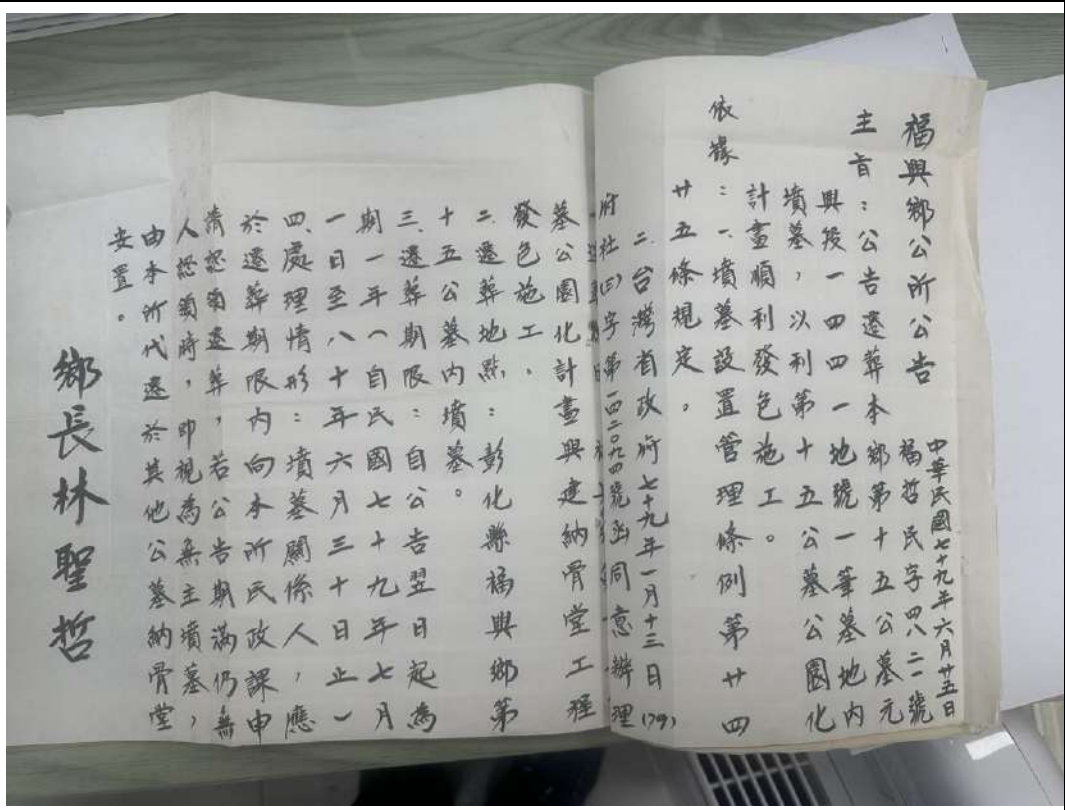 福興鄉公所公告
中華民國七十九年六月廿五日
福哲民字四八二一號
主旨：公告遷葬本鄉第十五公墓元
興段一四四一地號一筆墓地內
墳墓，以利第十五公墓公園化
計畫順利發包施工。
依據：一、墳墓設置管理條例第廿四
廿五條規定。
二、台灣省政府七十九年一月十三日(79)
府社(三)字第一四二〇九四號函同意辦理
墓公園化計畫興建納骨堂工程
發包施工。
二、遷葬地點：彰化縣福興鄉第
十五公墓內墳墓。
三、遷葬期限：自公告翌日起為
期一年（自民國七十九年七月
一日至八十年六月三十日止）
四、處理情形：墳墓關係人，應
於遷葬期限內向本所民政課申
請認領遷葬，若公告期滿仍無
人認領時，即視為無主墳墓，
由本所代遷於其他公墓納骨堂
安置。
鄉長林聖哲